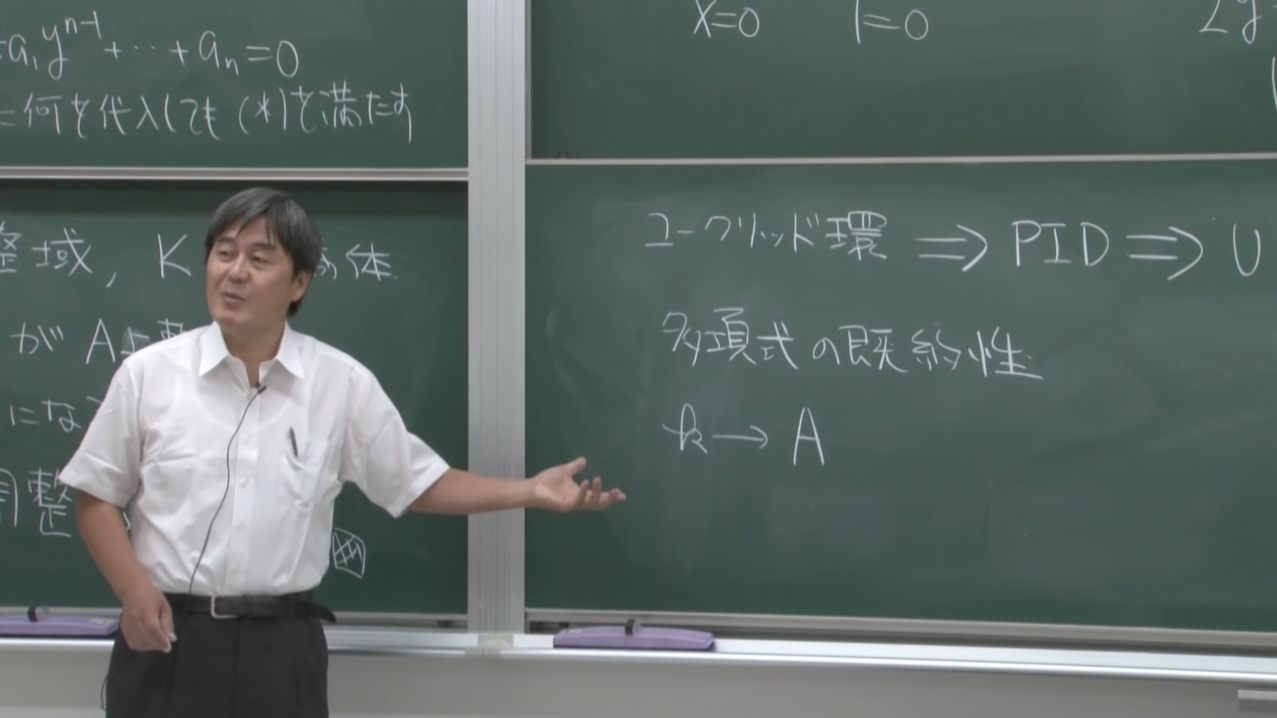 a₁yⁿ⁻¹+⋯+aₙ=0
=何を代入しても(*)を満たす
整域, K 商体
が A上整
になる
閉整
x=0 1=0
2y
ユークリッド環 ⇒ PID ⇒ U
多項式の既約性
k → A